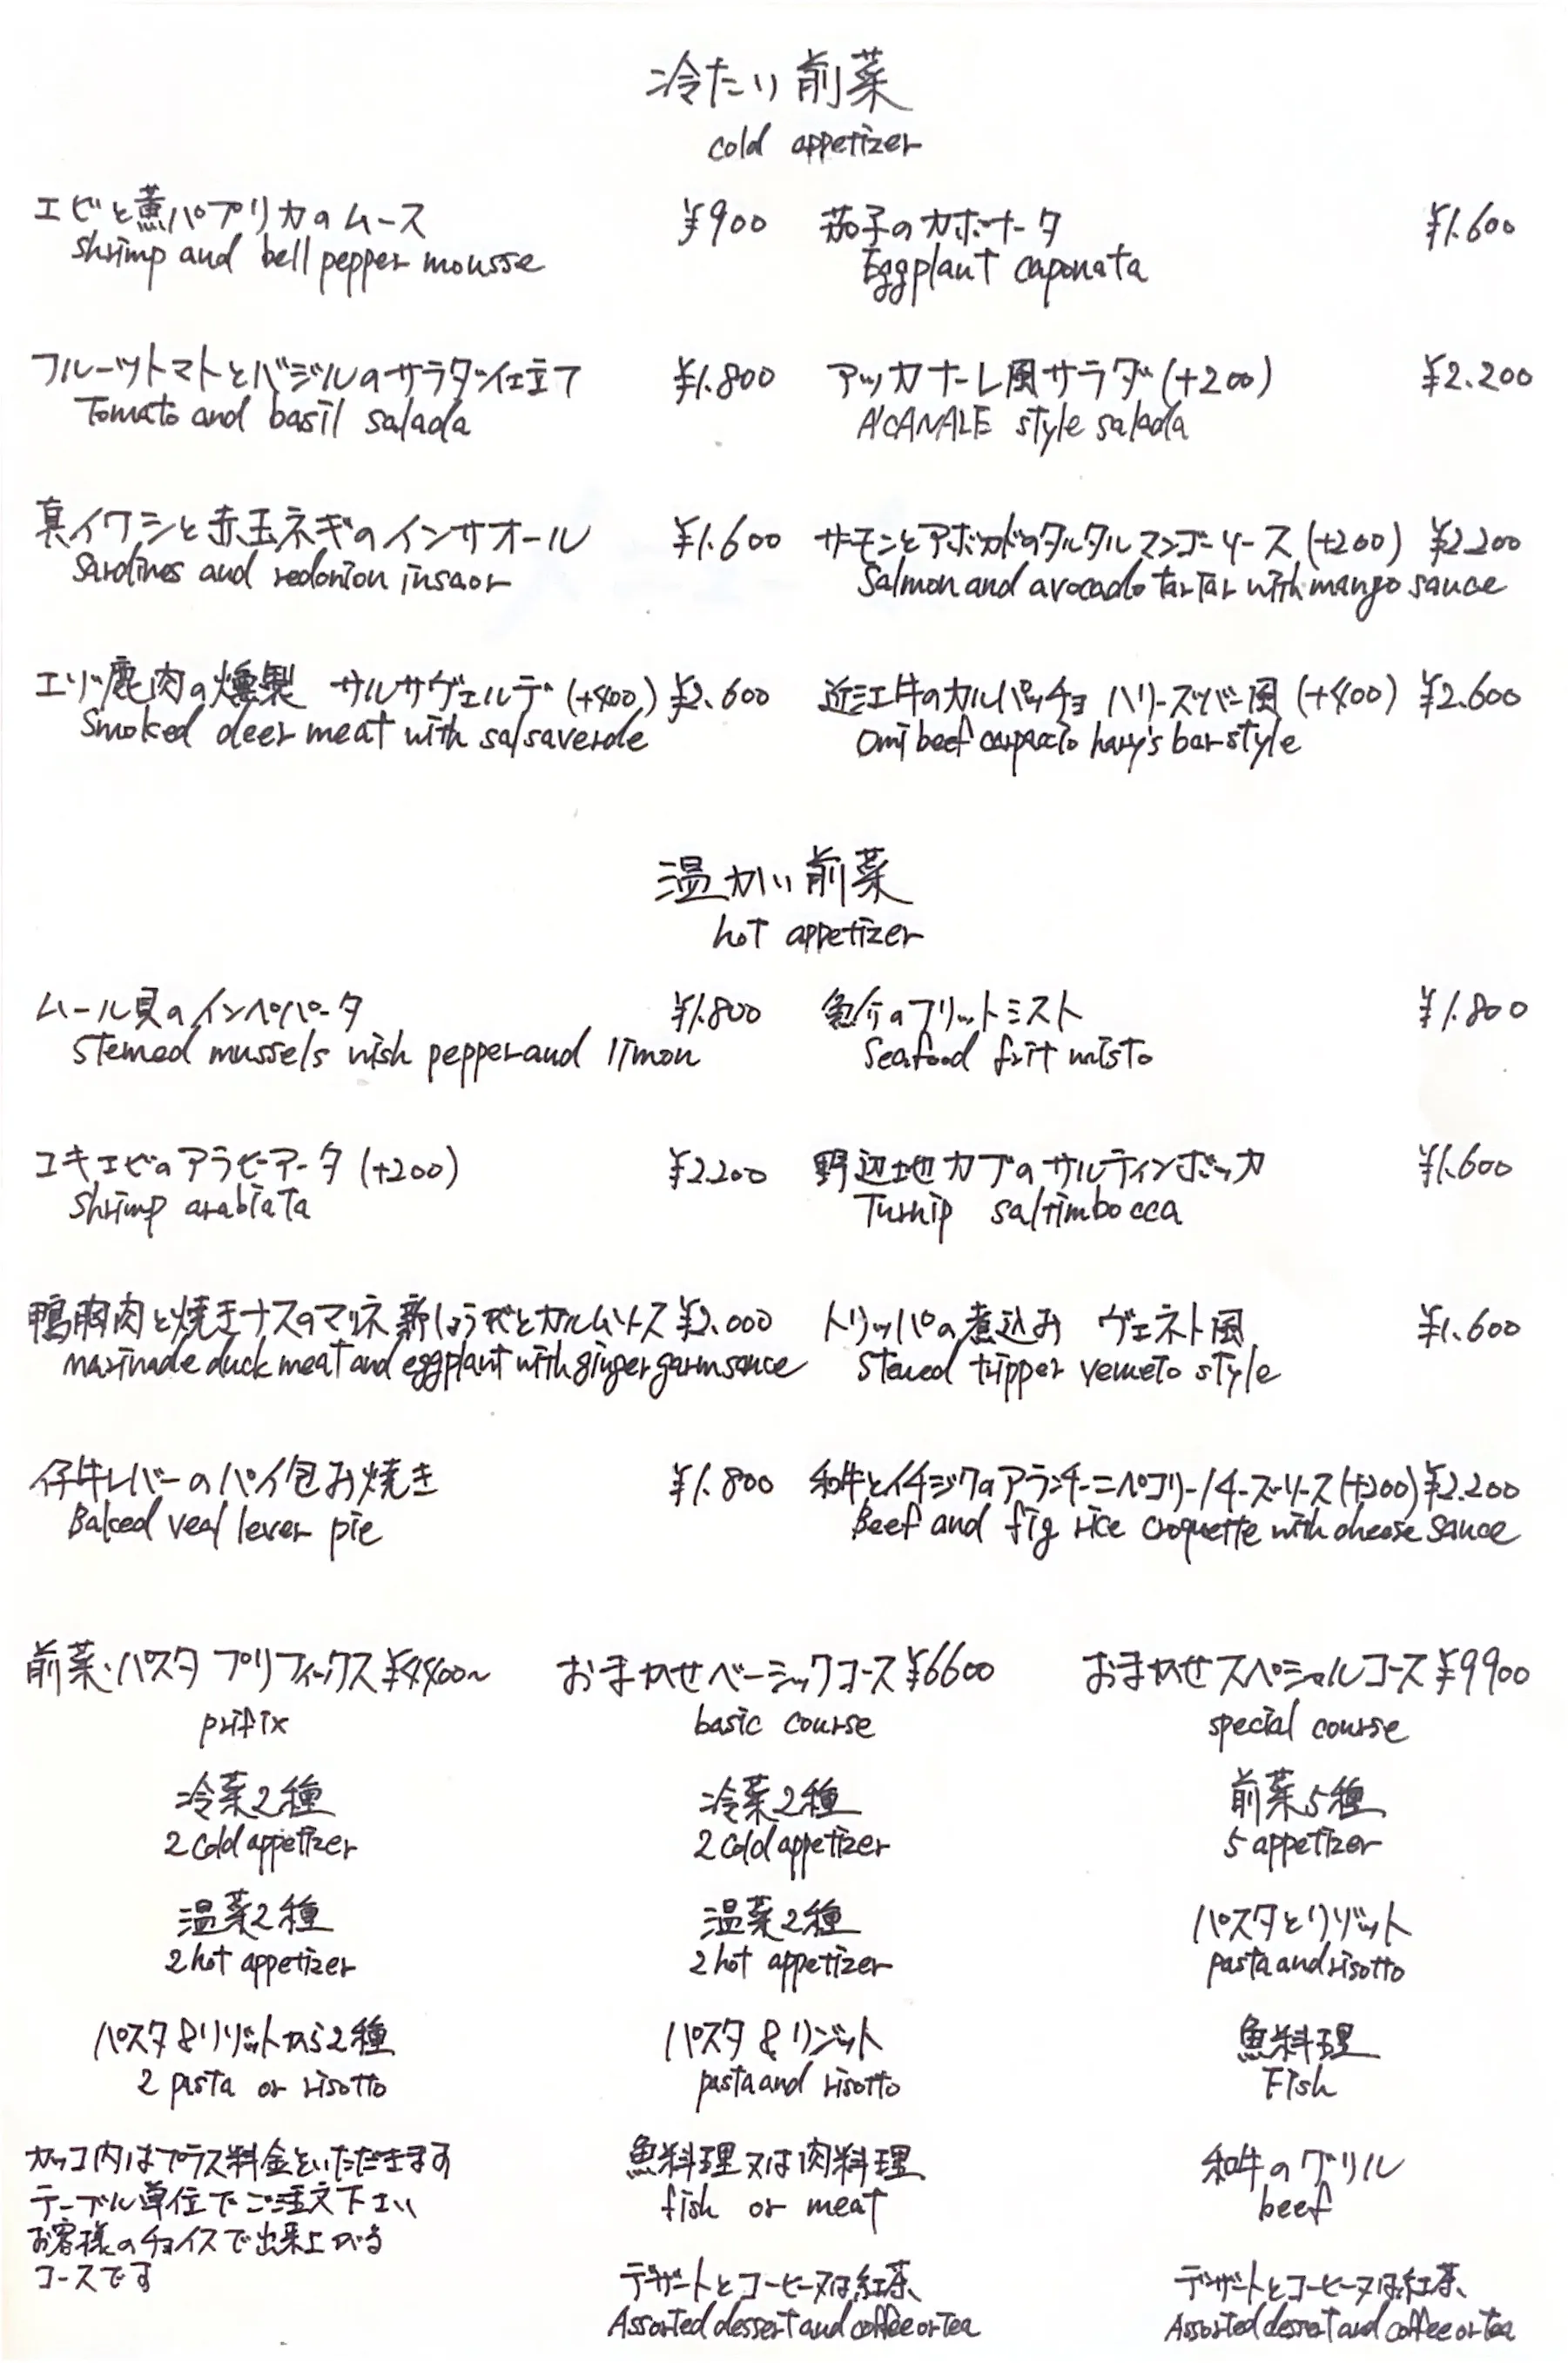 冷たい前菜
cold appetizer
エビと薫パプリカのムース ¥900
shrimp and bell pepper mousse
茄子のカポナータ ¥1.600
Eggplant caponata
フルーツトマトとバジルのサラダ仕立て ¥1.800
Tomato and basil salada
アッカナーレ風サラダ (+200) ¥2.200
A'CANALE style salada
真イワシと赤玉ネギのインサオール ¥1.600
Sardines and redonion insaor
サーモンとアボカドのタルタルマンゴーソース (+200) ¥2.200
Salmon and avocado tartar with mango sauce
エゾ鹿肉の燻製 サルサヴェルデ (+400) ¥2.600
Smoked deer meat with salsaverde
近江牛のカルパッチョ ハリーズバー風 (+400) ¥2.600
Omi beef carpaccio hary's bar style
温かい前菜
hot appetizer
ムール貝のインペパータ ¥1.800
Stemed mussels wish pepper and limon
魚介のフリットミスト ¥1.800
Seafood frit misto
ユキエビのアラビアータ (+200) ¥2.200
Shrimp arabiata
野辺地カブのサルティンボッカ ¥1.600
Turnip saltimbocca
鴨胸肉と焼きナスのマリネ 新しょうがとガルムソース ¥2.000
marinade duck meat and eggplant with ginger garm sauce
トリッパの煮込み ヴェネト風 ¥1.600
Stewed tripper veneto style
仔牛レバーのパイ包み焼き ¥1.800
Baked veal lever pie
和牛とイチジクのアランチーニペコリーノチーズソース (+200) ¥2.200
Beef and fig rice croquette with cheese sauce
前菜・パスタ プリフィックス ¥4400~
prifix
冷菜2種
2 cold appetizer
温菜2種
2 hot appetizer
パスタ&リゾットから2種
2 pasta or risotto
カッコ内はプラス料金をいただきます
テーブル単位でご注文下さい
お客様のチョイスで出来上がる
コースです
おまかせベーシックコース ¥6600
basic course
冷菜2種
2 cold appetizer
温菜2種
2 hot appetizer
パスタ&リゾット
pasta and risotto
魚料理又は肉料理
fish or meat
デザートとコーヒー又は紅茶
Assorted dessert and coffee or tea
おまかせスペシャルコース ¥9900
special course
前菜5種
5 appetizer
パスタとリゾット
pasta and risotto
魚料理
Fish
和牛のグリル
beef
デザートとコーヒー又は紅茶
Assorted dessert and coffee or tea